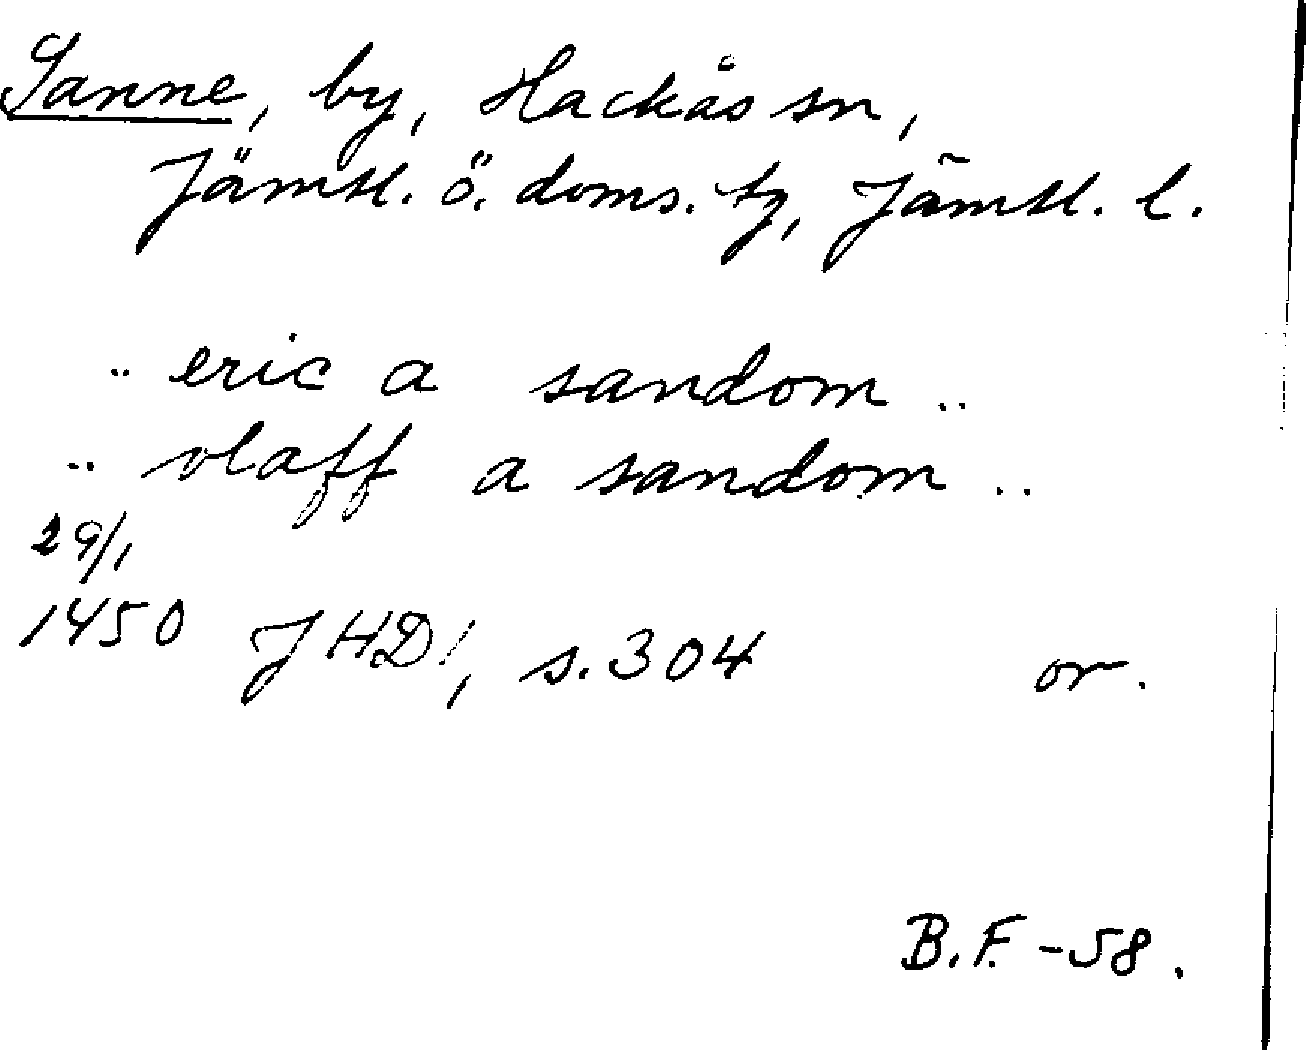 Sanne, by, Hackås sn,
Jämtl. ö. doms. tg, Jämtl. l.
.. eric a sandom ..
.. olaff a sandom ..
29/1
1450 JHD 1, s. 304 or.
B.F. -58.